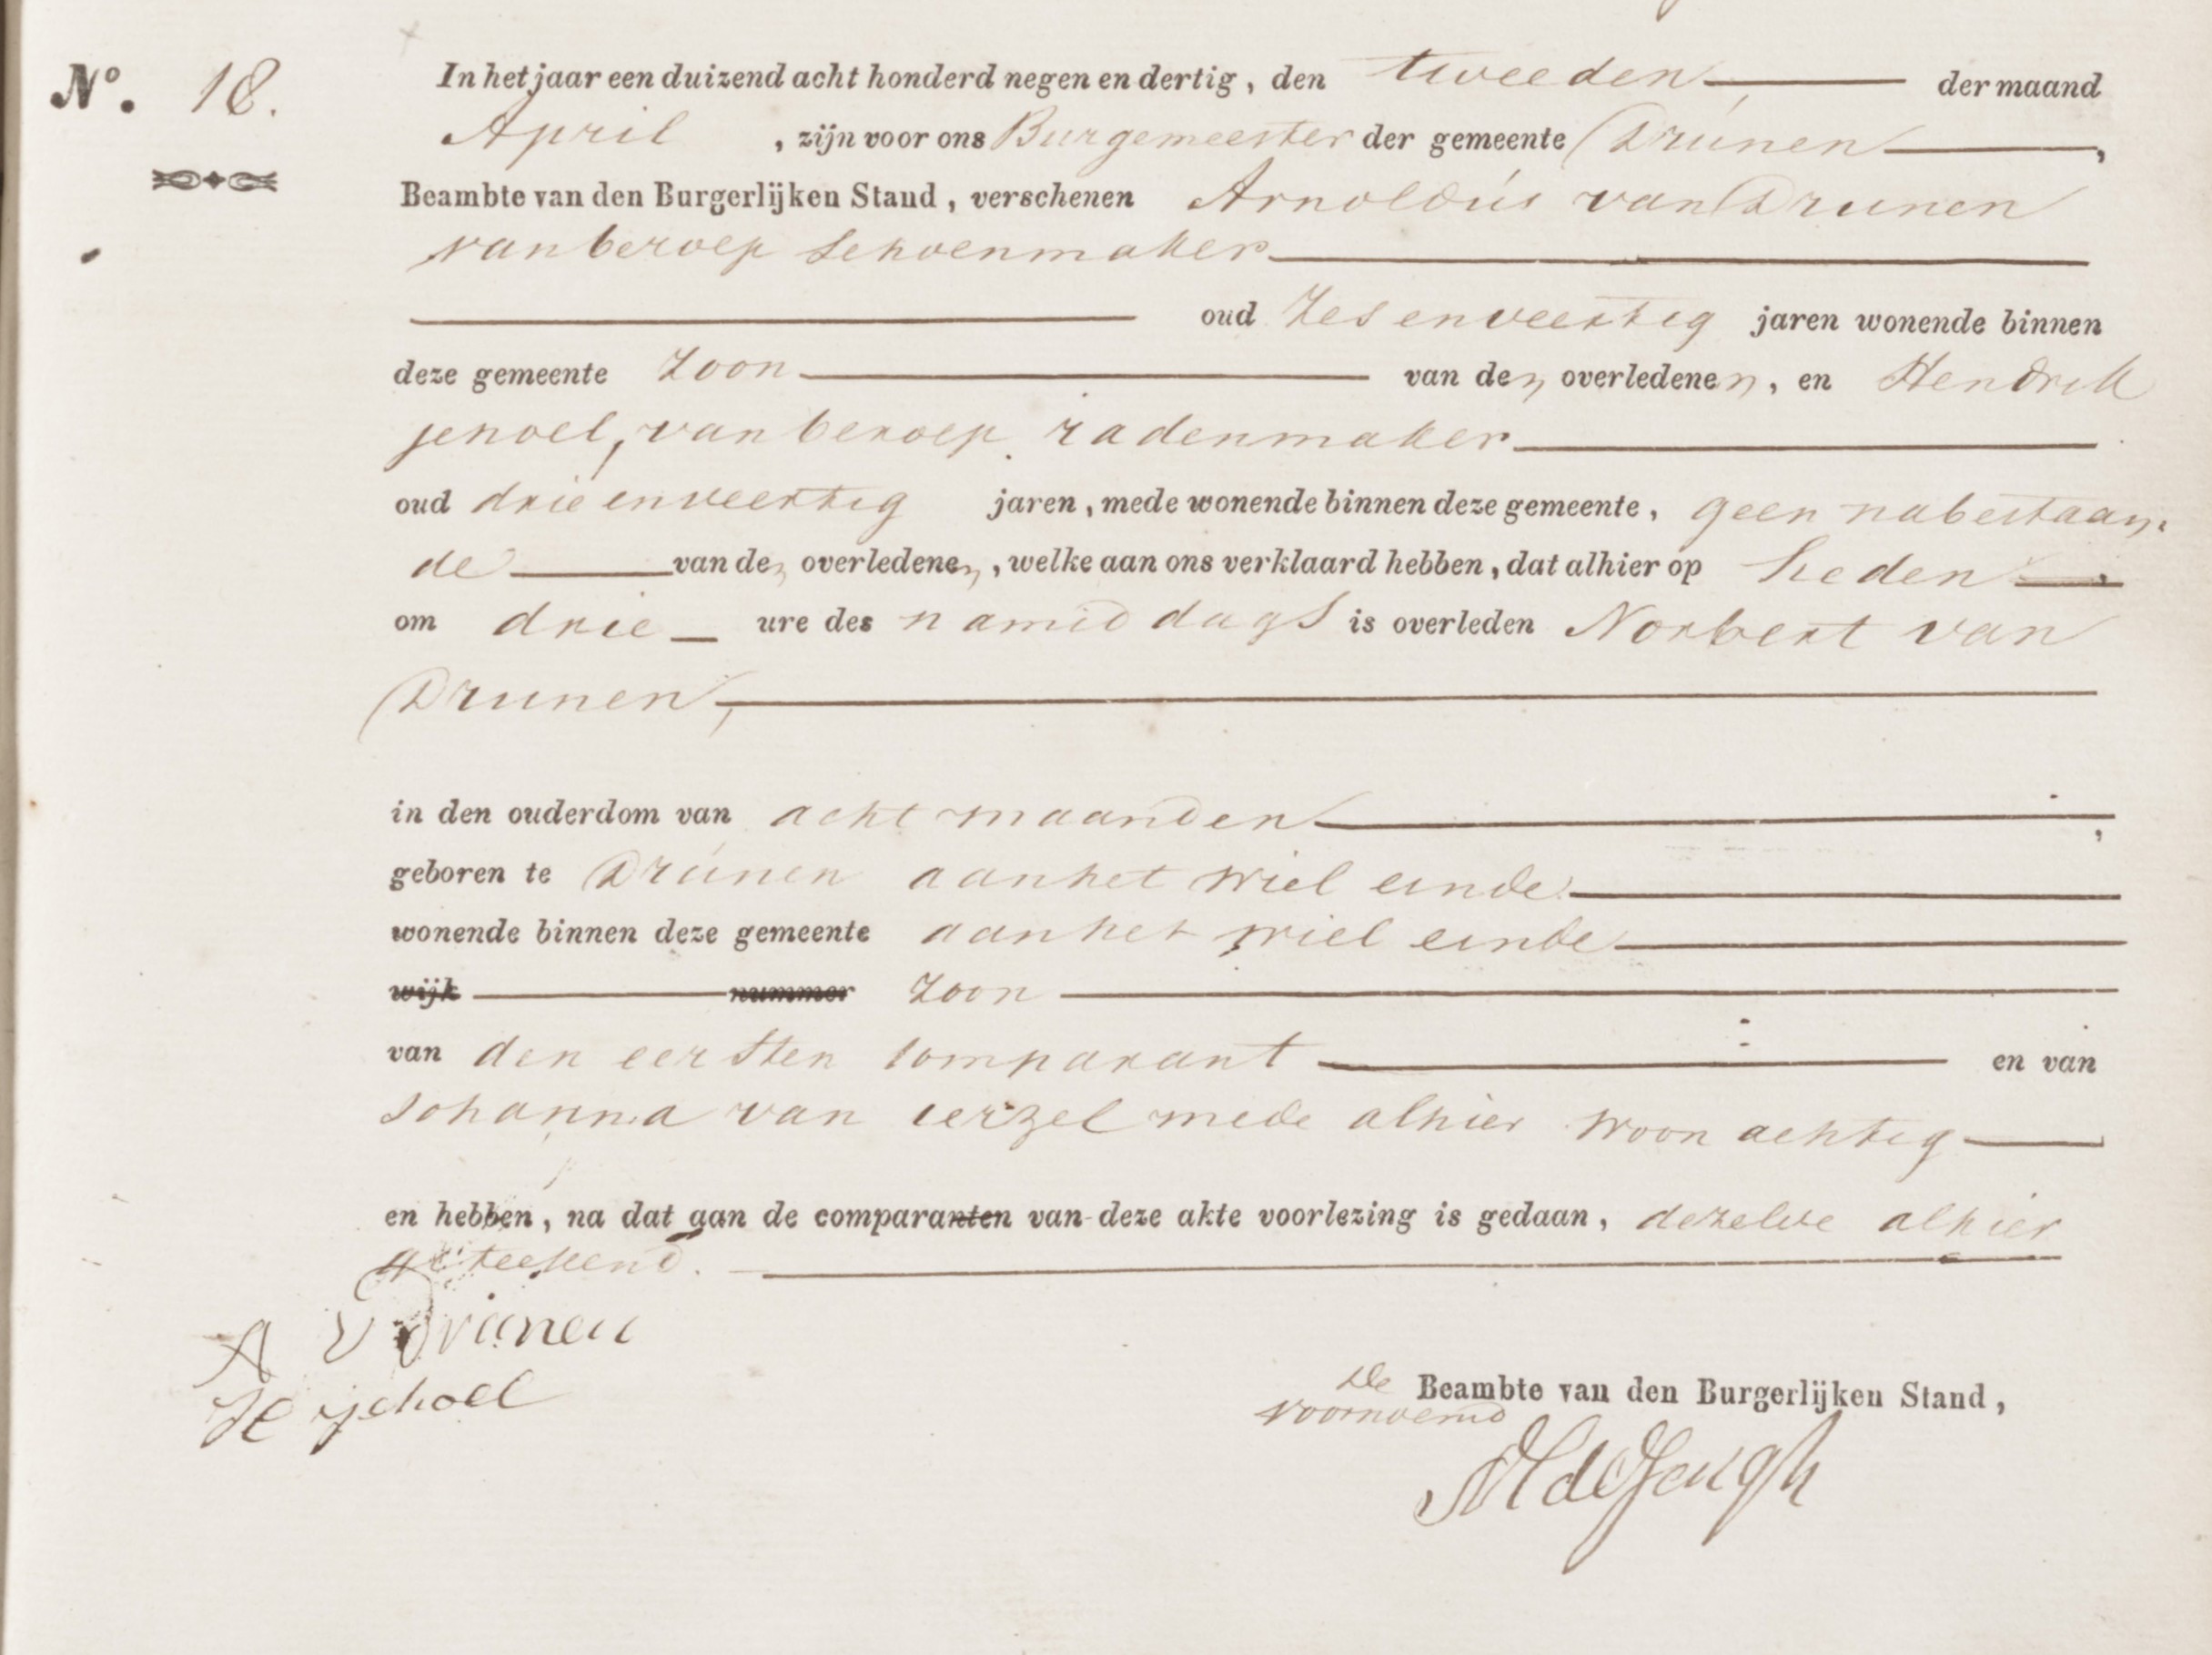 Nº. 18.
In het jaar een duizend acht honderd negen en dertig, den tweeden der maand
April, zijn voor ons Burgemeester der gemeente Drúnen,
Beambte van den Burgerlijken Stand, verschenen Arnoldús van Drunen
van beroep schoenmaker
oud Zes en veertig jaren wonende binnen
deze gemeente Zoon van den overledenen, en Hendrik
schoel, van beroep radenmaker
oud drie en veertig jaren, mede wonende binnen deze gemeente, geen nabestaan.
de van den overledenen, welke aan ons verklaard hebben, dat alhier op heden
om drie ure des namiddags is overleden Norbert van
Drunen,
in den ouderdom van acht maanden,
geboren te Drúnen aan het wiel einde
wonende binnen deze gemeente aan het wiel einde
wijk nummer Zoon
van den eersten comparant en van
Johanna van ierzel mede alhier woon achtig
en hebben, na dat aan de comparanten van deze akte voorlezing is gedaan, dezelve alhier
geteekend.
A v Drunen
H schoel
De Beambte van den Burgerlijken Stand,
voornoemd